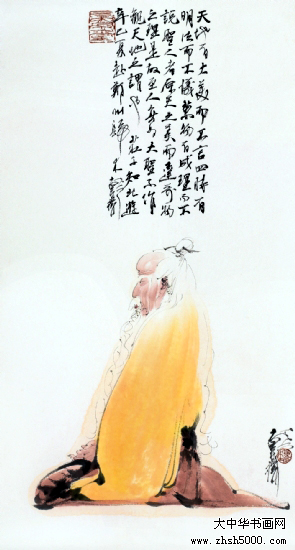 天地有大美而不言四時有
明法而不議萬物有成理而不
說聖人者原天地之美而達萬物
之理是故至人無為大聖不作
觀天地之謂也 莊子知北遊
辛巳夏赴鄭州歸來
大中华书画网
www.zhsh5000.com